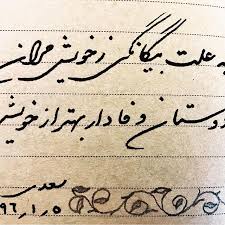 به علت بیگانگی ز خویش مران
دوستان وفادار بهتر از خویش
سعدی
۹۶٫۱٫۵